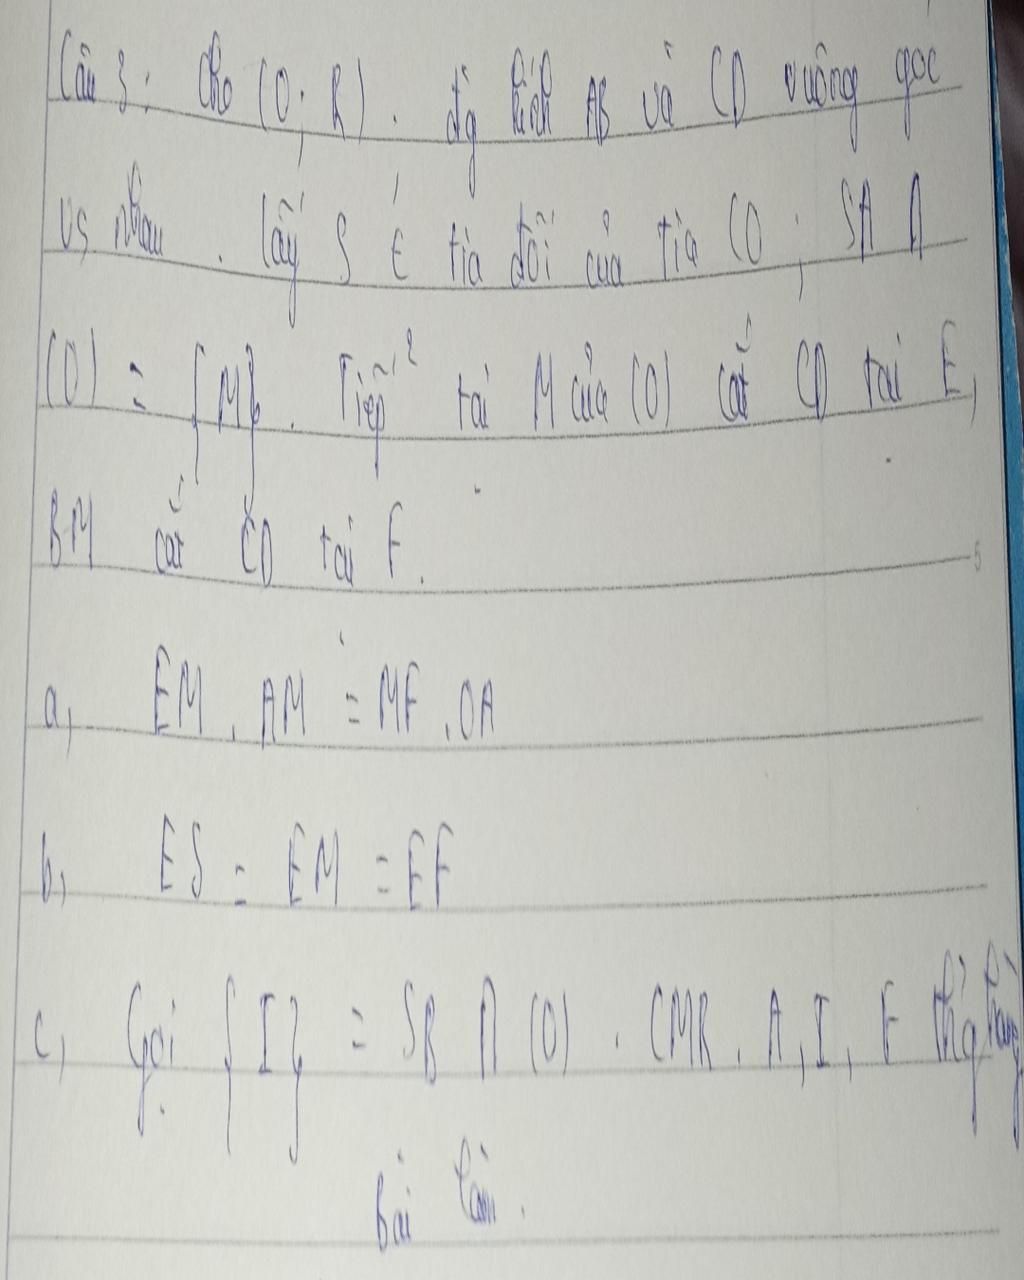 Câu 3: Cho (O; R). đg kính AB và CD vuông góc
vs nhau. Lấy S ∈ tia đối của tia CO; SA ∩
(O) = {M}. Tiếp² tại M của (O) cắt CD tại E,
BM cắt CD tại F.
a, EM . AM = MF . OA
b, ES = EM = EF
c, Gọi {I} = SB ∩ (O) . CMR. A, I, F thẳg hàng
Bài làm.